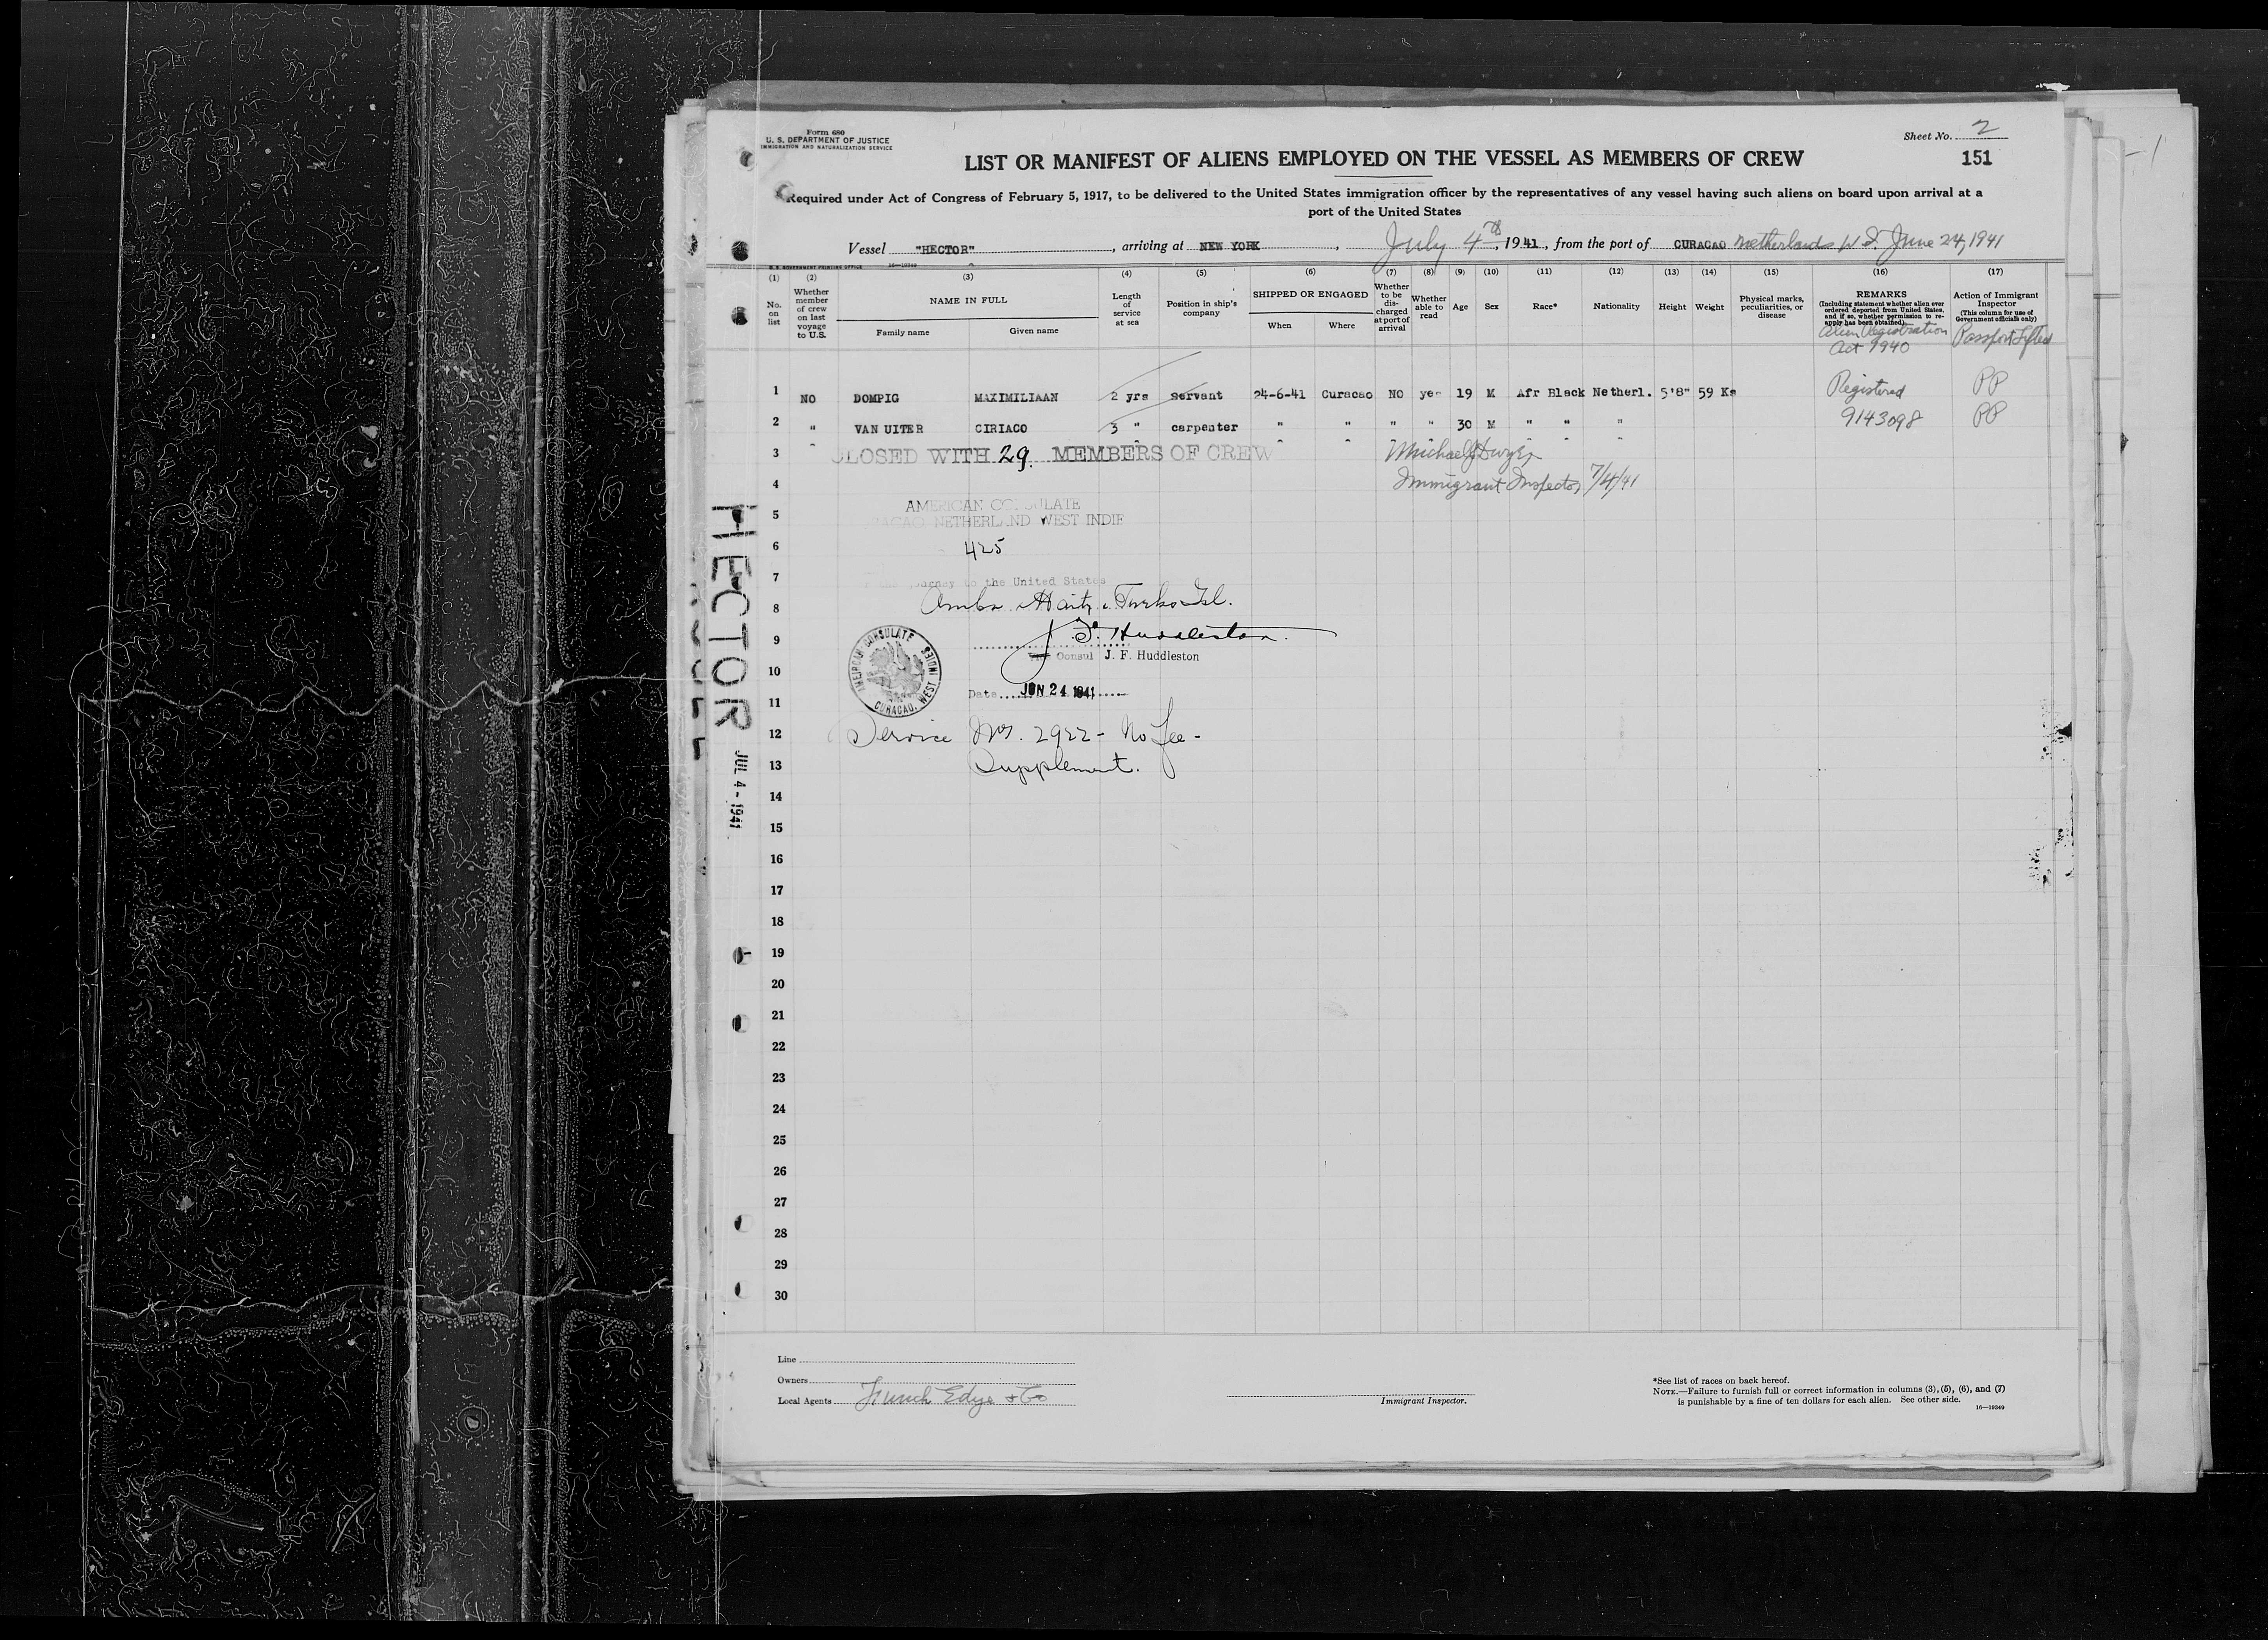 Form 680
U. S. DEPARTMENT OF JUSTICE
IMMIGRATION AND NATURALIZATION SERVICE
Sheet No. 2
151
LIST OR MANIFEST OF ALIENS EMPLOYED ON THE VESSEL AS MEMBERS OF CREW
Required under Act of Congress of February 5, 1917, to be delivered to the United States immigration officer by the representatives of any vessel having such aliens on board upon arrival at a
port of the United States
Vessel "HECTOR", arriving at NEW YORK, July 4th, 1941, from the port of CURACAO Netherlands W I. June 24, 1941
U. S. GOVERNMENT PRINTING OFFICE 16—19349
(1) (2) (3) (4) (5) (6) (7) (8) (9) (10) (11) (12) (13) (14) (15) (16) (17)
No. on list
Whether member of crew on last voyage to U.S.
NAME IN FULL
Family name
Given name
Length of service at sea
Position in ship's company
SHIPPED OR ENGAGED
When
Where
Whether to be discharged at port of arrival
Whether able to read
Age
Sex
Race*
Nationality
Height
Weight
Physical marks, peculiarities, or disease
REMARKS
(Including statement whether alien ever ordered deported from United States, and if so, whether permission to reapply has been obtained)
Alien Registration
Act 1940
Action of Immigrant Inspector
(This column for use of Government officials only)
Passport Lifted
1 NO DOMPIG MAXIMILIAAN 2 yrs servant 24-6-41 Curacao NO yes 19 M Afr Black Netherl. 5'8" 59 Kg Registered PP
2 " VAN UITER CIRIACO 3 " carpenter " " " " 30 M " " " 9143098 PP
3 CLOSED WITH 29. MEMBERS OF CREW Michael J Dwyer
4 Immigrant Inspector 7/4/41
AMERICAN CONSULATE
5
CURACAO NETHERLAND WEST INDIE
6 425
7 journey to the United States
8 Aruba Haiti Turks Isl.
9 J. F. Huddleston
Vice Consul J. F. Huddleston
AMERICAN CONSULATE
CURACAO, WEST INDIES
10
Date JUN 24 1941
11
12 Service No. 2922 - No Fee -
13 Supplement.
14
15
16
17
18
19
20
21
22
23
24
25
26
27
28
29
30
HECTOR
JUL 4 - 1941
Line
Owners
Local Agents Funch Edye & Co
Immigrant Inspector.
*See list of races on back hereof.
NOTE.—Failure to furnish full or correct information in columns (3), (5), (6), and (7)
is punishable by a fine of ten dollars for each alien. See other side.
16—19349